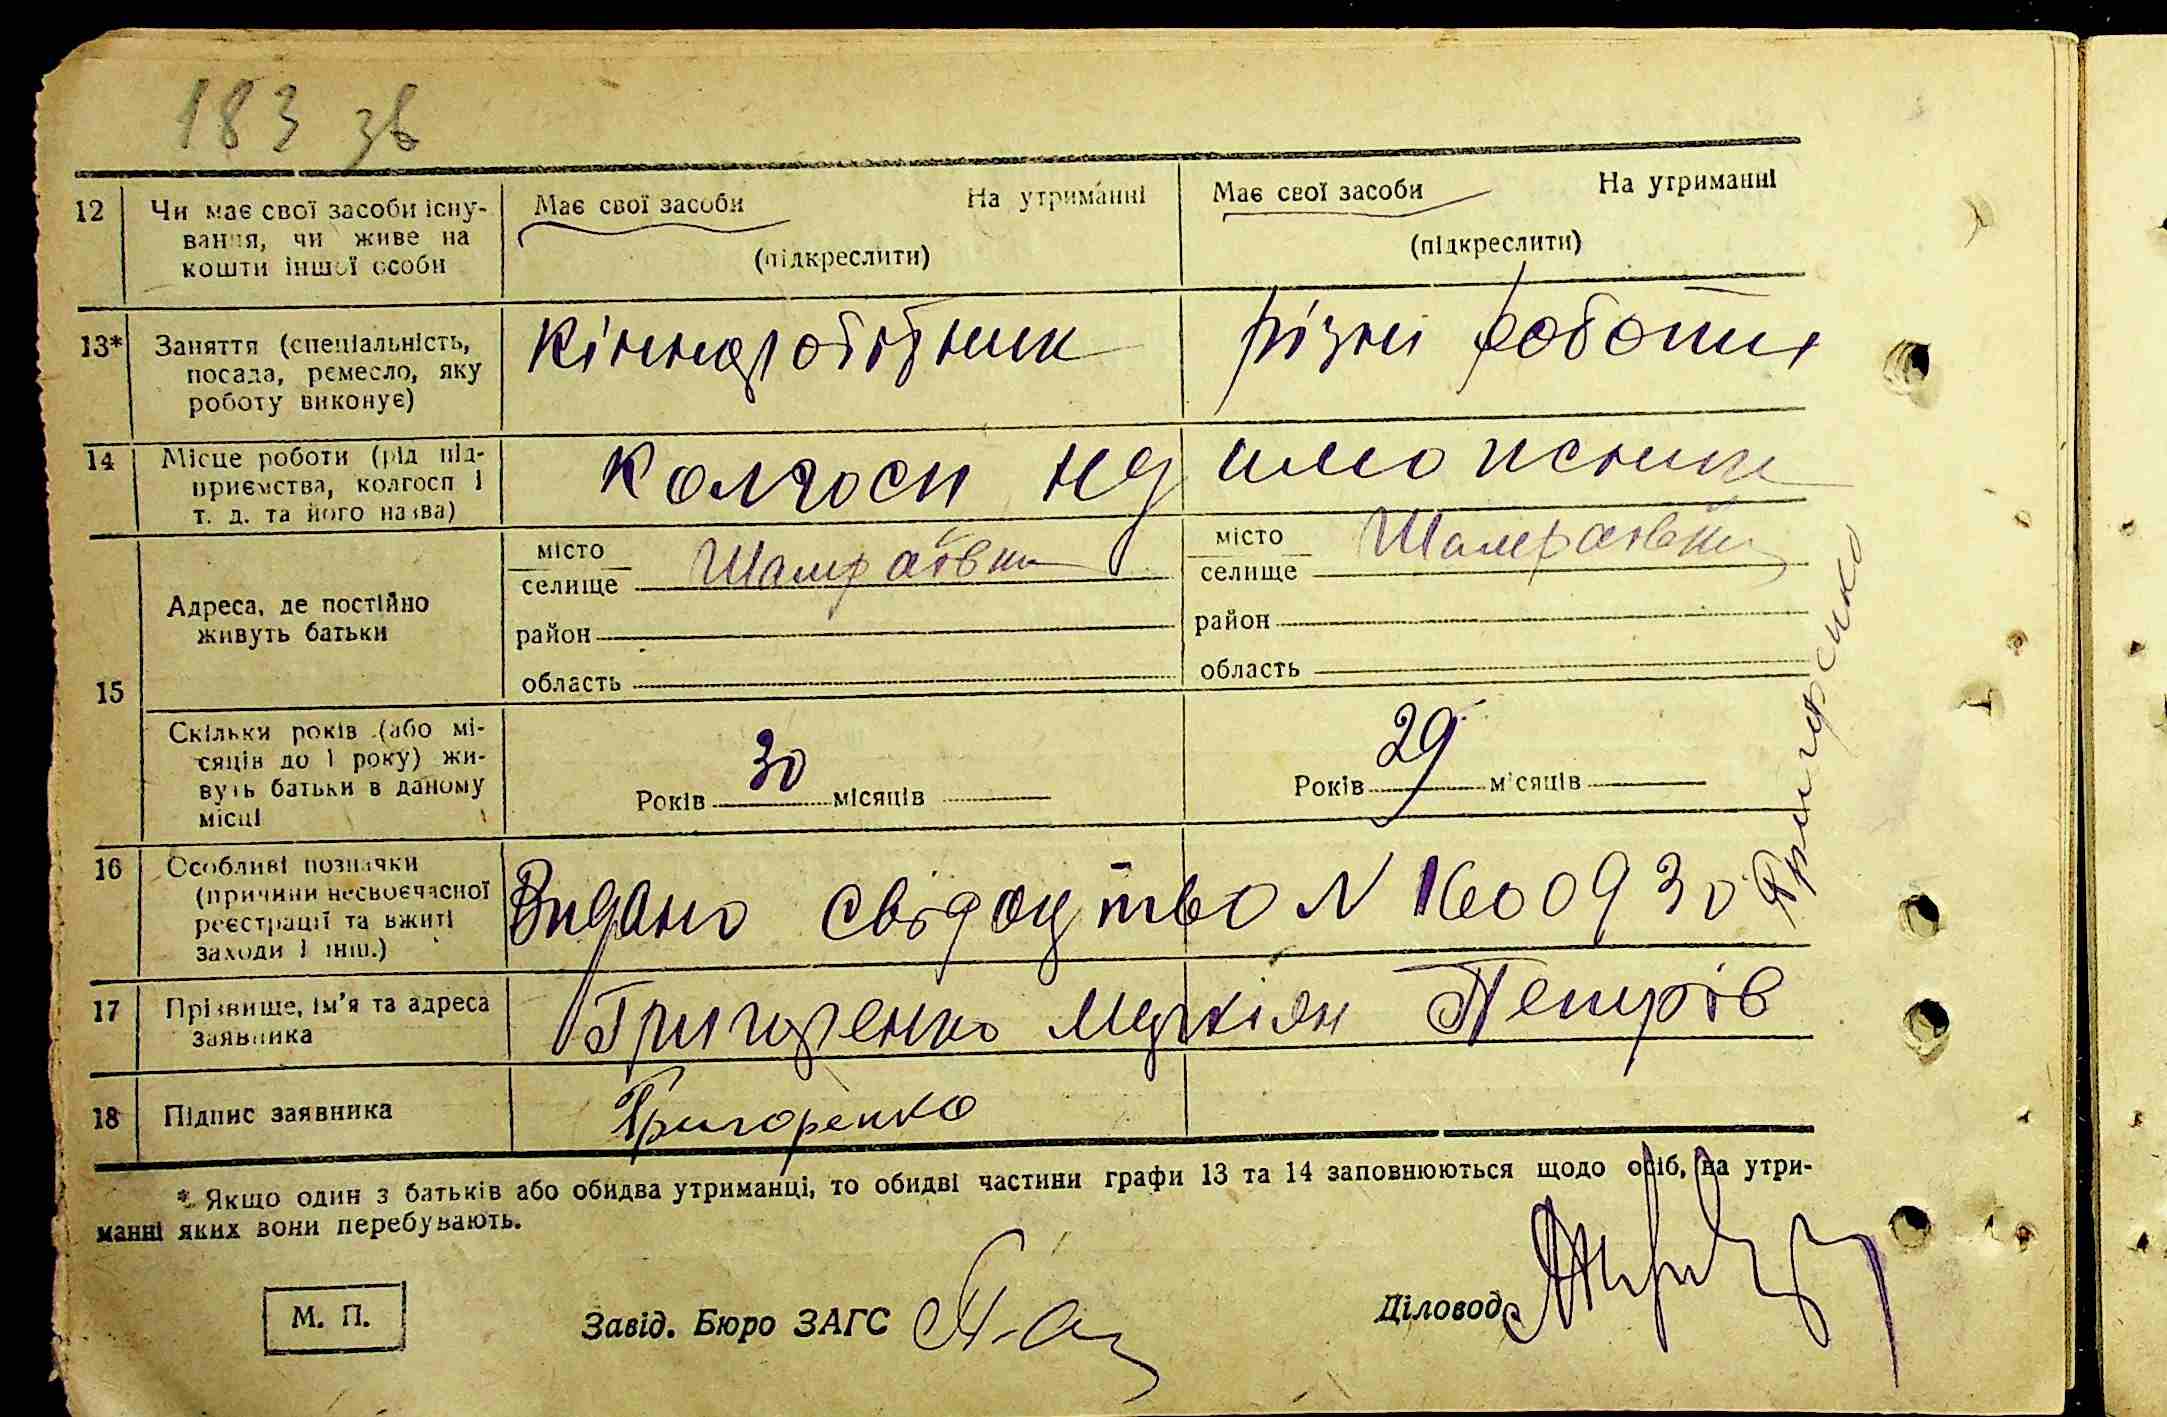 183 зв
12 Чи має свої засоби існу- Має свої засоби На утриманні Має свої засоби На утриманні
вання, чи живе на (підкреслити) (підкреслити)
кошти іншої особи
13* Заняття (спеціальність, різні роботи
посада, ремесло, яку
роботу виконує)
14 Місце роботи (рід під- Колгосп
приємства, колгосп і
т. д. та його назва)
15 Адреса, де постійно
живуть батьки
місто Шамраївка місто Шамраївка
селище селище
район район
область область
Скільки років (або мі-
сяців до 1 року) жи-
вуть батьки в даному
місці
Років 30 місяців Років 29 місяців
16 Особливі позначки
(причини несвоєчасної
реєстрації та вжиті
заходи і інш.)
Видано свідоцтво N 1600930 Григоренко
17 Прізвище, ім'я та адреса Григоренко Мркіян Петрів
заявника
18 Підпис заявника Григоренко
* Якщо один з батьків або обидва утриманці, то обидві частини графи 13 та 14 заповнюються щодо осіб, на утри-
манні яких вони перебувають.
М. П.
Завід. Бюро ЗАГС
Діловод